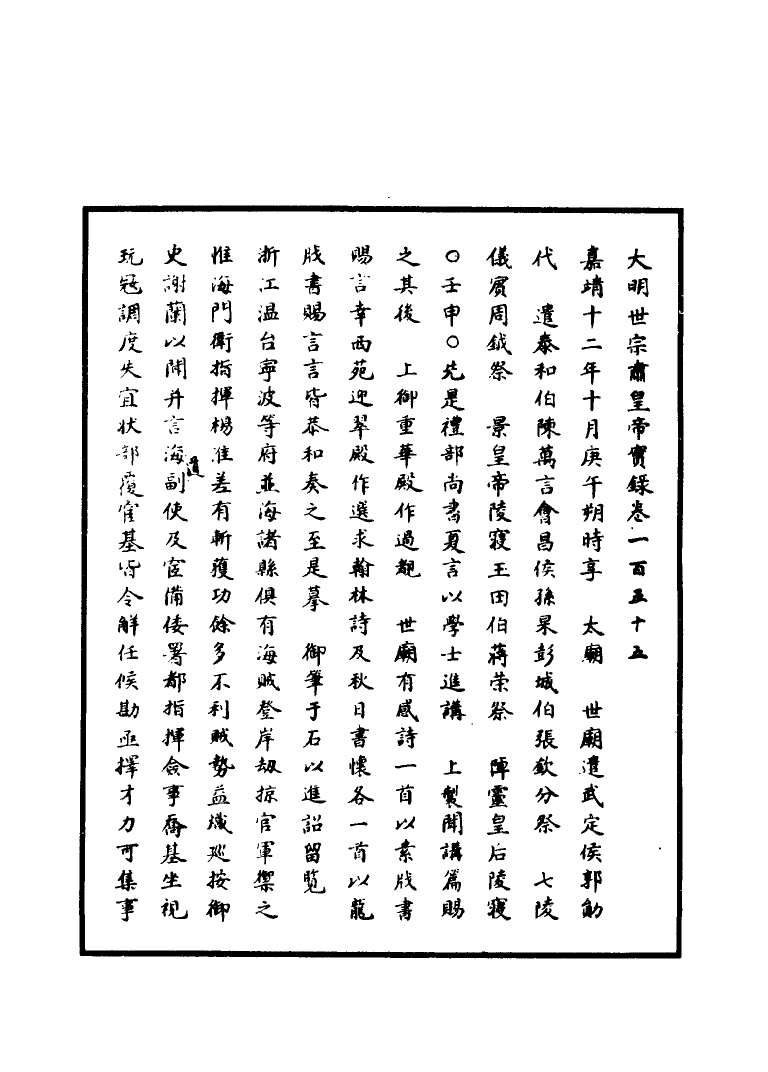 大明世宗肅皇帝實錄卷一百五十五
嘉靖十二年十月庚午朔時享　太廟　世廟遣武定侯郭勛
代　遣泰和伯陳萬言會昌侯孫杲彭城伯張欽分祭　七陵
儀賓周鉞祭　景皇帝陵寢玉田伯蔣榮祭　悼靈皇后陵寢
○壬申○先是禮部尚書夏言以學士進講　上製聞講篇賜
之其後　上御重華殿作過覩　世廟有感詩一首以素牋書
賜言幸西苑迎翠殿作選求翰林詩及秋日書懷各一首以龍
牋書賜言言皆恭和奏之至是摹　御筆于石以進詔留覽
浙江温台寧波等府並海諸縣俱有海賊登岸刼掠官軍禦之
惟海門衛指揮楊淮差有斬獲功餘多不利賊勢益熾廵按御
史謝蘭以聞并言海道副使及宦備倭署都指揮僉事喬基坐視
玩寇調度失宜狀部覆宦基皆令解任候勘亟擇才力可集事